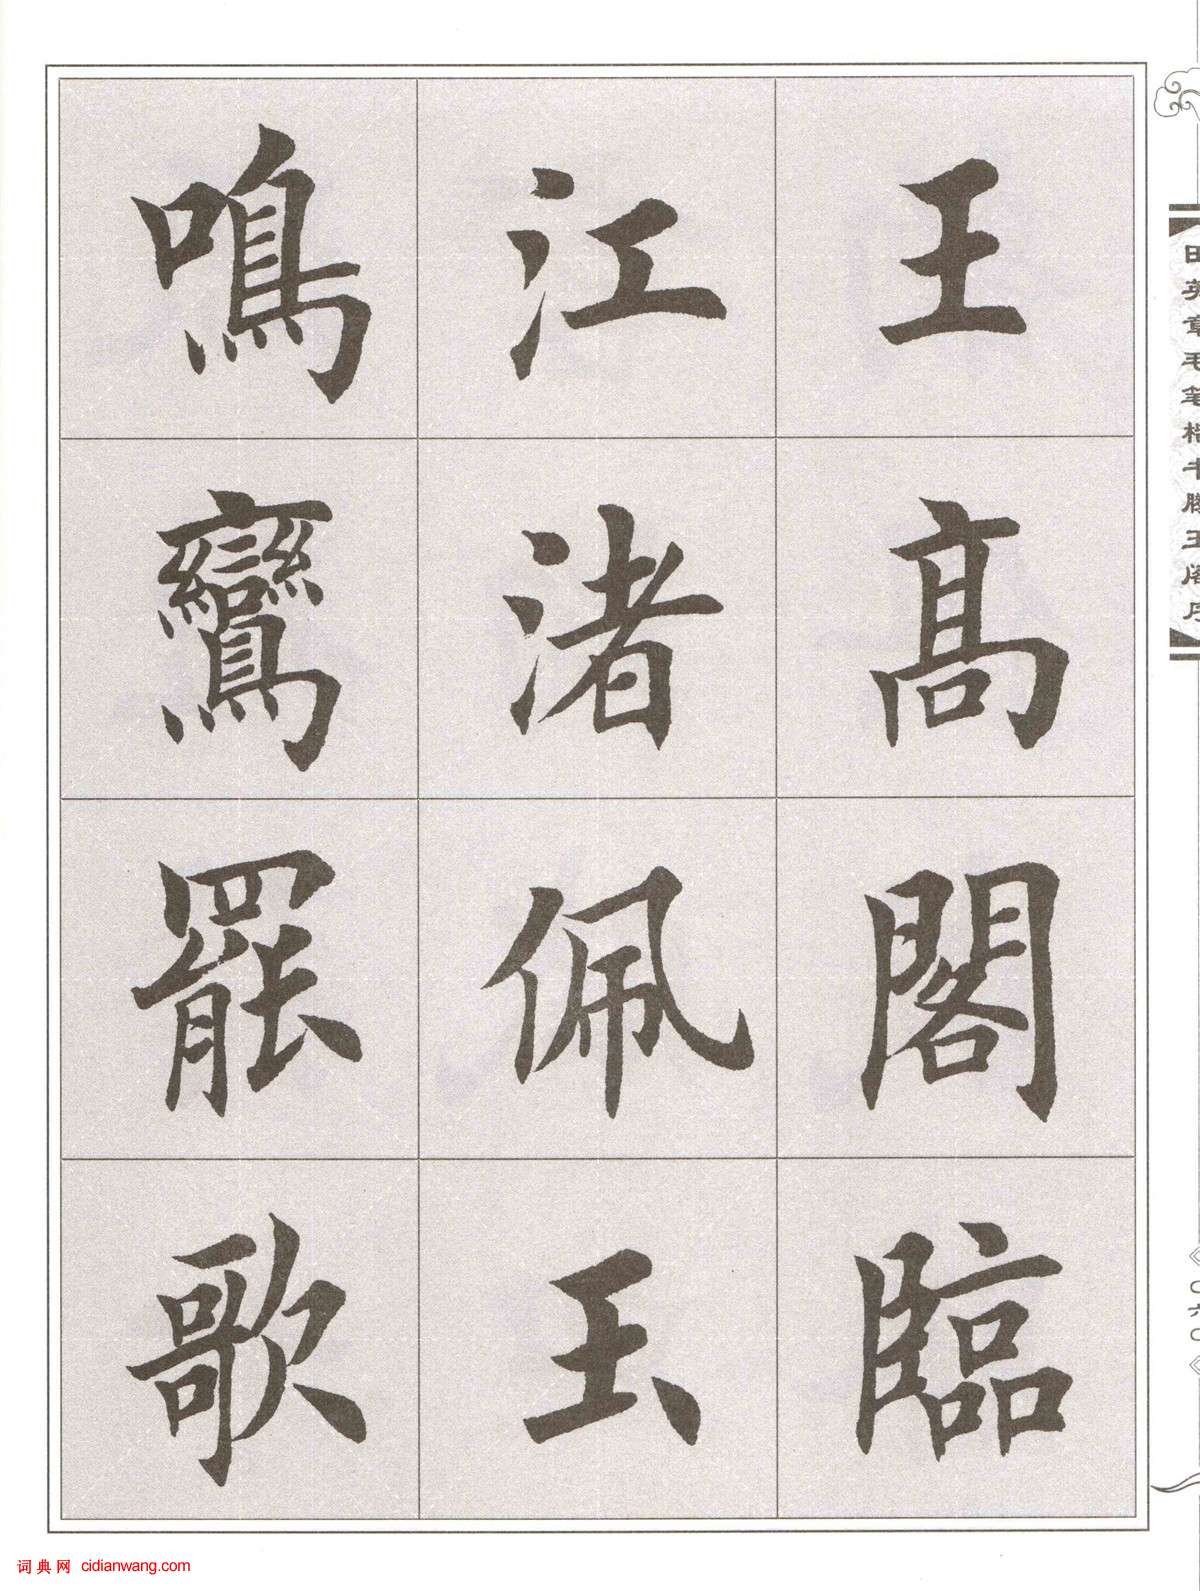 王高閣臨
江渚佩玉
鳴鸞罷歌
田英章毛笔楷书滕王阁序
六〇
词典网 cidianwang.com